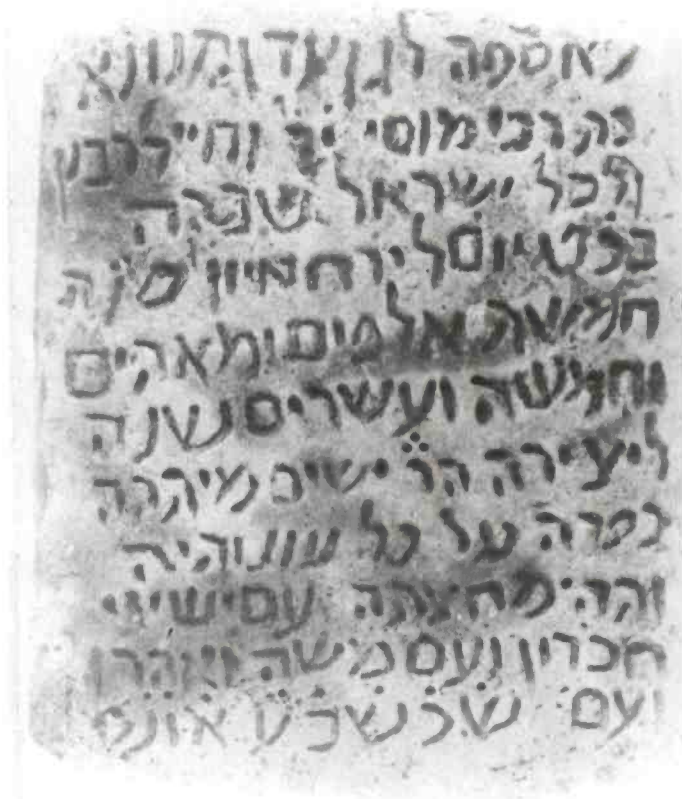 נאספה לגן עדן
רבי מוסי יב וחיי לרבנן
ולכל ישראל שבקה
יום לירח סיון שנה
חמשת אלפים ומאתים
וחמשה ועשרים שנה
ליצירה הק ישים מיתתה
כפרה על כל עונותיה
ותהי מחיצתה עם ישיני
חברון ועם משה ואהרן
ועם